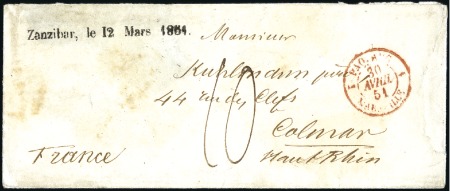 Zanzibar, le 12 Mars 1851.
Monsieur
Kuhlmann père
44 rue des Clefs
Colmar
Haut Rhin
France
30
AVRIL
51